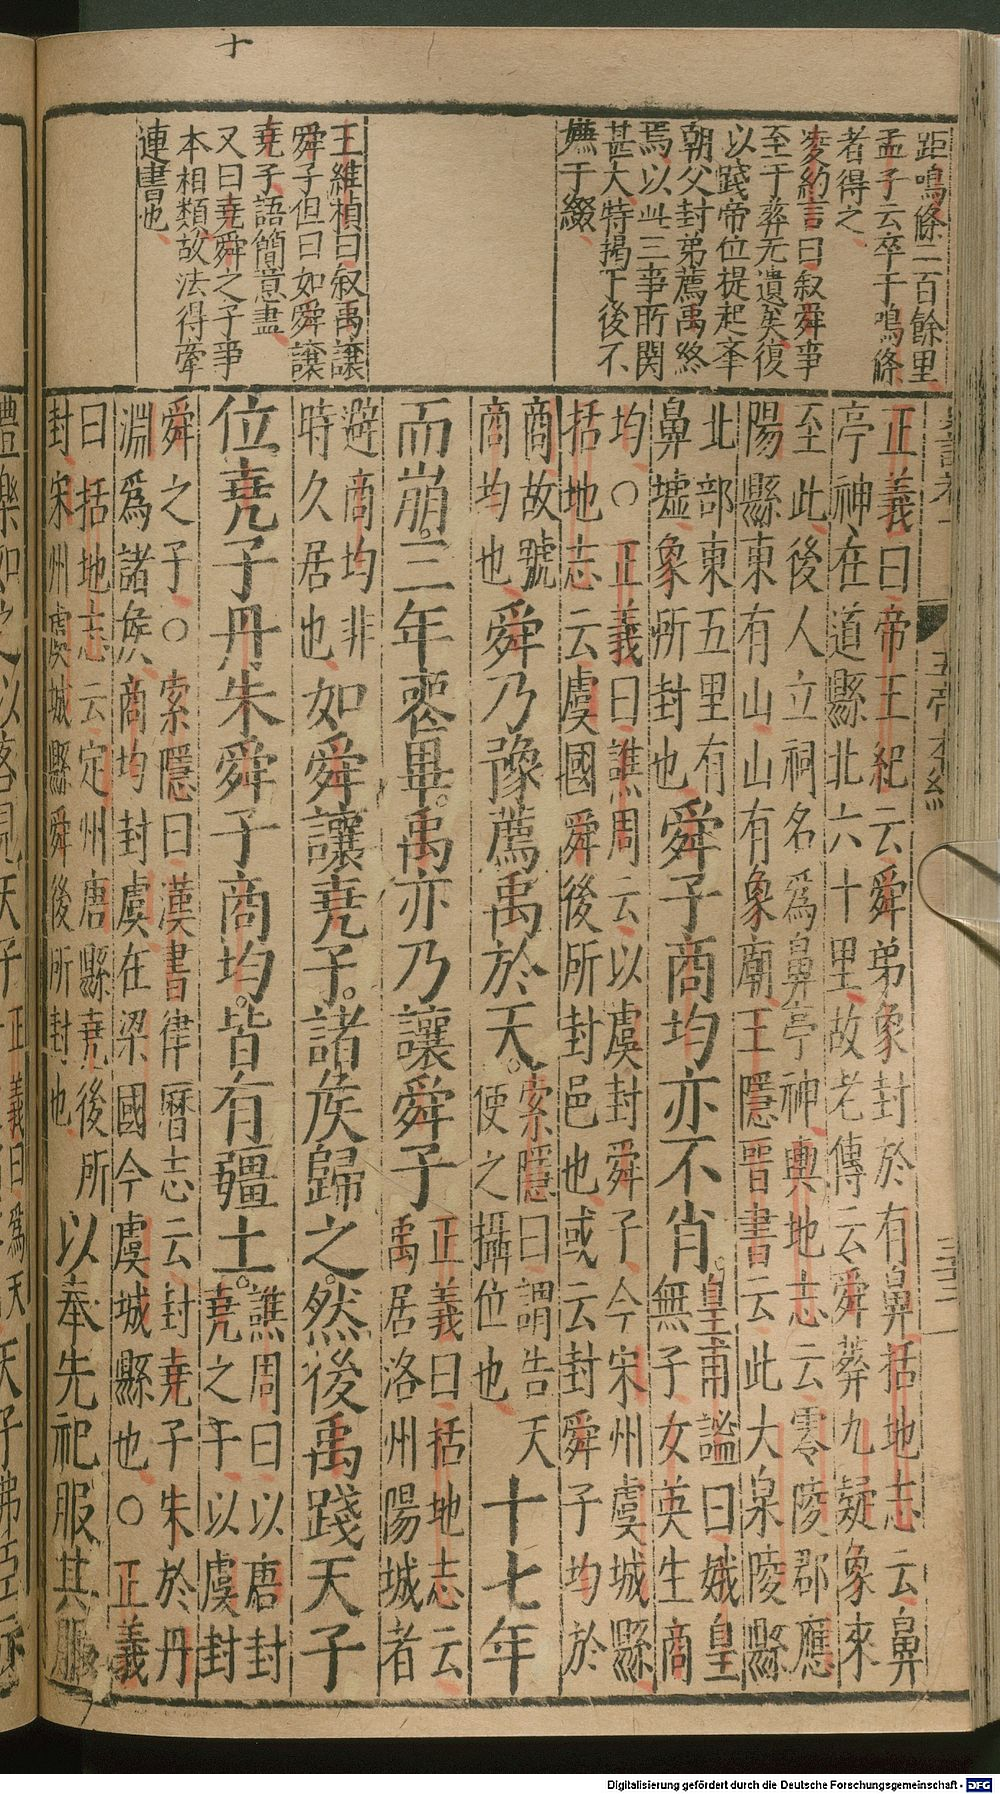 十
距鳴條二百餘里
孟子云卒于鳴條
者得之
凌約言曰叙舜事
至于彝无遺矣復
以踐帝位提起奉
朝父封弟薦禹終
焉以此三事所関
甚大特揭于後不
嫌于綴
王維楨曰叙禹讓
舜子但曰如舜讓
堯子語簡意盡
又曰堯舜之子事
本相類故法得牽
連書也
五帝本紀
正義曰帝王紀云舜弟象封於有鼻括地志云鼻
亭神在道縣北六十里故老傳云舜葬九疑象來
至此後人立祠名爲鼻亭神輿地志云零陵郡應
陽縣東有山山有象廟王隱晉書云此大泉陵縣
北部東五里有
鼻墟象所封也
舜子商均亦不肖
皇甫謐曰娥皇
無子女英生商
均○正義曰譙周云以虞封舜子今宋州虞城縣
括地志云虞國舜後所封邑也或云封舜子均於
商故號
商均也
舜乃豫薦禹於天
索隱曰謂告天
使之攝位也
十七年
而崩三年喪畢禹亦乃讓舜子
正義曰括地志云
禹居洛州陽城者
避商均非
時久居也
如舜讓堯子諸侯歸之然後禹踐天子
位堯子丹朱舜子商均皆有疆土
譙周曰以唐封
堯之子以虞封
舜之子○索隱曰漢書律曆志云封堯子朱於丹
淵爲諸侯商均封虞在梁國今虞城縣也○正義
曰括地志云定州唐縣堯後所
封宋州虞城縣舜後所封也
以奉先祀服其服
Digitalisierung gefördert durch die Deutsche Forschungsgemeinschaft - DFG